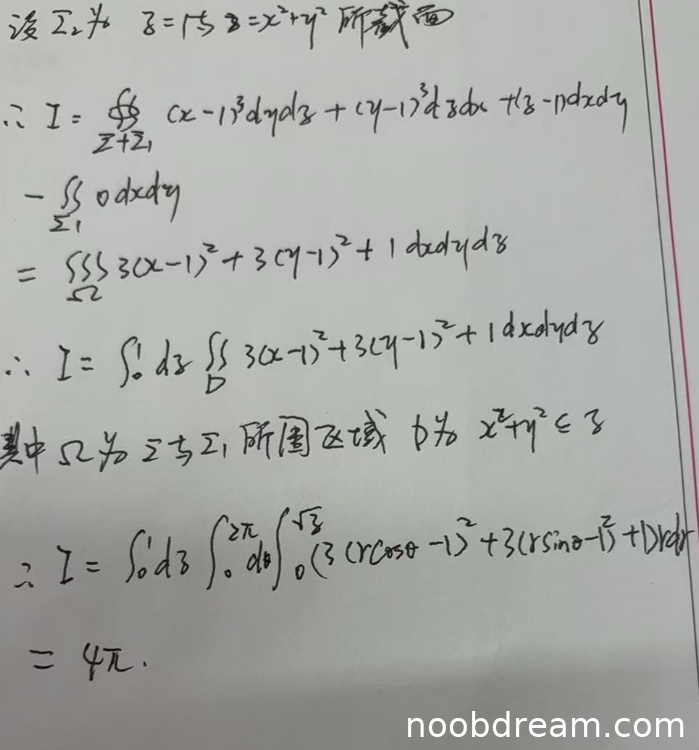 设Σ₁为 z=1与z=x²+y²所截面
∴ I = ∯_{Σ+Σ₁} (x-1)³dydz + (y-1)³dzdx + (z-1)dxdy
- ∬_{Σ₁} 0dxdy
= ∭_Ω 3(x-1)²+3(y-1)²+1 dxdydz
∴ I = ∫₀¹ dz ∬_D 3(x-1)²+3(y-1)²+1 dxdydz
其中Ω为Σ与Σ₁所围区域 D为 x²+y²≤z
∴ I = ∫₀¹dz ∫₀^{2π} dθ ∫₀^{√z} (3(rcosθ-1)²+3(rsinθ-1)²+1)rdr
= 4π.
noobdream.com